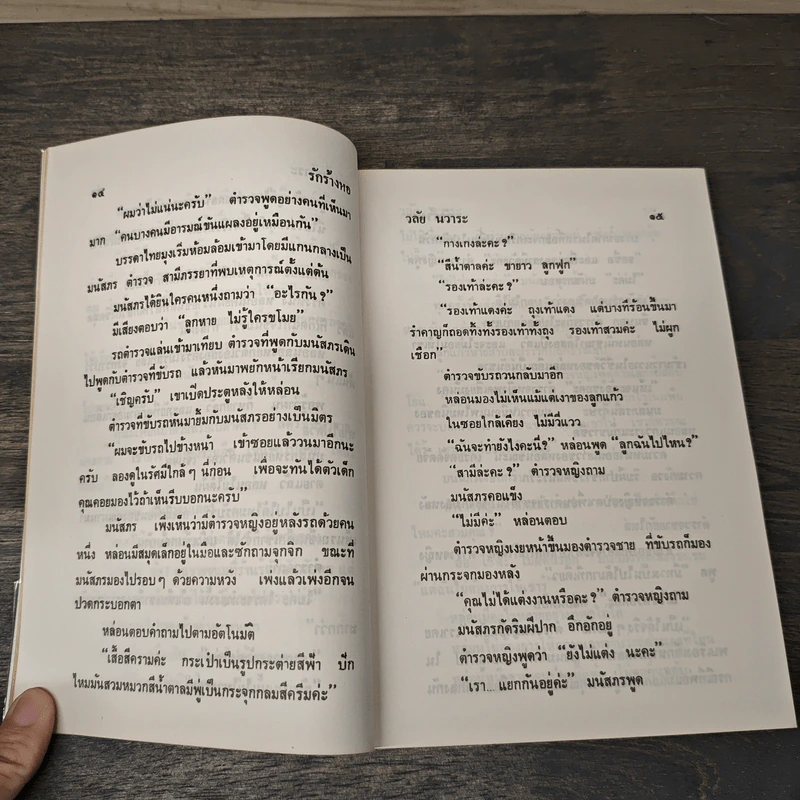 ๑๔ รักร้างหอ
“ผมว่าไม่แน่นะครับ” ตำรวจพูดอย่างคนที่เห็นมา
มาก “คนบางคนมีอารมณ์ขันแผลงอยู่เหมือนกัน”
บรรดาไทยมุงเริ่มห้อมล้อมเข้ามาโดยมีแกนกลางเป็น
มนัสภร ตำรวจ สามีภรรยาที่พบเหตุการณ์ตั้งแต่ต้น
มนัสภรได้ยินใครคนหนึ่งถามว่า “อะไรกัน?”
มีเสียงตอบว่า “ลูกหาย ไม่รู้ใครขโมย”
รถตำรวจแล่นเข้ามาเทียบ ตำรวจที่พูดกับมนัสภรเดิน
ไปพูดกับตำรวจที่ขับรถ แล้วหันมาพยักหน้าเรียกมนัสภร
“เชิญครับ” เขาเปิดประตูหลังให้หล่อน
ตำรวจที่ขับรถหันมายิ้มกับมนัสภรอย่างเป็นมิตร
“ผมจะขับรถไปข้างหน้า เข้าซอยแล้ววนมาอีกนะ
ครับ ลองดูในรัศมีใกล้ๆ นี่ก่อน เพื่อจะทันได้ตัวเด็ก
คุณคอยมองไว้ถ้าเห็นรีบบอกนะครับ”
มนัสภร เพิ่งเห็นว่ามีตำรวจหญิงอยู่หลังรถด้วยคน
หนึ่ง หล่อนมีสมุดเล็กอยู่ในมือและซักถามจุกจิก ขณะที่
มนัสภรมองไปรอบๆ ด้วยความหวัง เพ่งแล้วเพ่งอีกจน
ปวดกระบอกตา
หล่อนตอบคำถามไปตามอัตโนมัติ
“เสื้อสีครามค่ะ กระเป๋าเป็นรูปกระต่ายสีฟ้า ปัก
ไหมมันสวมหมวกสีน้ำตาลมีพู่เป็นกระจุกกลมสีครีมค่ะ”
วลัย นวาระ ๑๕
“กางเกงล่ะคะ?”
“สีน้ำตาลค่ะ ขายาว ลูกฟูก”
“รองเท้าล่ะคะ?”
“รองเท้าแดงค่ะ ถุงเท้าแดง แต่บางทีร้อนขึ้นมา
รำคาญก็ถอดทิ้งทั้งรองเท้าทั้งถุง รองเท้าสวมค่ะ ไม่ผูก
เชือก”
ตำรวจขับรถวนกลับมาอีก
หล่อนมองไม่เห็นแม้แต่เงาของลูกแก้ว
ในซอยใกล้เคียง ไม่มีวี่แวว
“ฉันจะทำยังไงคะนี่?” หล่อนพูด “ลูกฉันไปไหน?”
“สามีล่ะคะ?” ตำรวจหญิงถาม
มนัสภรคอแข็ง
“ไม่มีค่ะ” หล่อนตอบ
ตำรวจหญิงเงยหน้าขึ้นมองตำรวจชาย ที่ขับรถก็มอง
ผ่านกระจกมองหลัง
“คุณไม่ได้แต่งงานหรือคะ?” ตำรวจหญิงถาม
มนัสภรกัดริมฝีปาก อึกอักอยู่
ตำรวจหญิงพูดว่า “ยังไม่แต่ง นะคะ”
“เรา... แยกกันอยู่ค่ะ” มนัสภรพูด